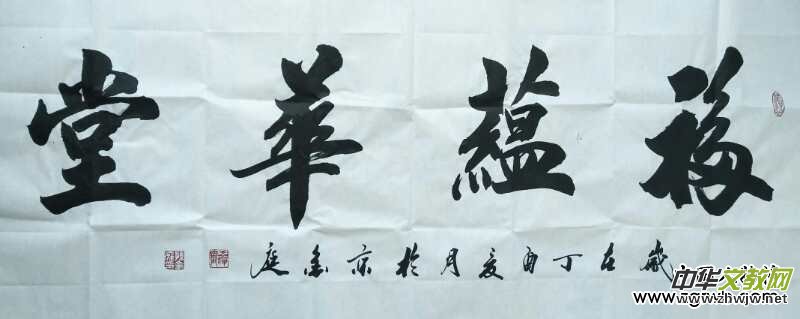 福蘊華堂
歲在丁酉夏月於京 庭
中华文教网
www.zhwjw.net